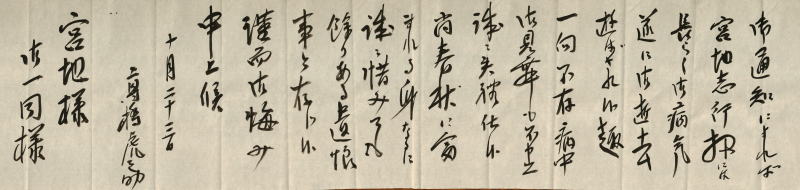 御通知によれば
宮地志行却に候
長らく御病気
遂に御逝去
遊ばされ候趣
一向不存病中
御見舞も不申上
誠に失礼仕候
尚春秋に富
まれる身なるに
誠に惜みても
餘りある遺恨
事と存上候
謹而御悔み
申上候
十月二十三日
宮地様
御一同様